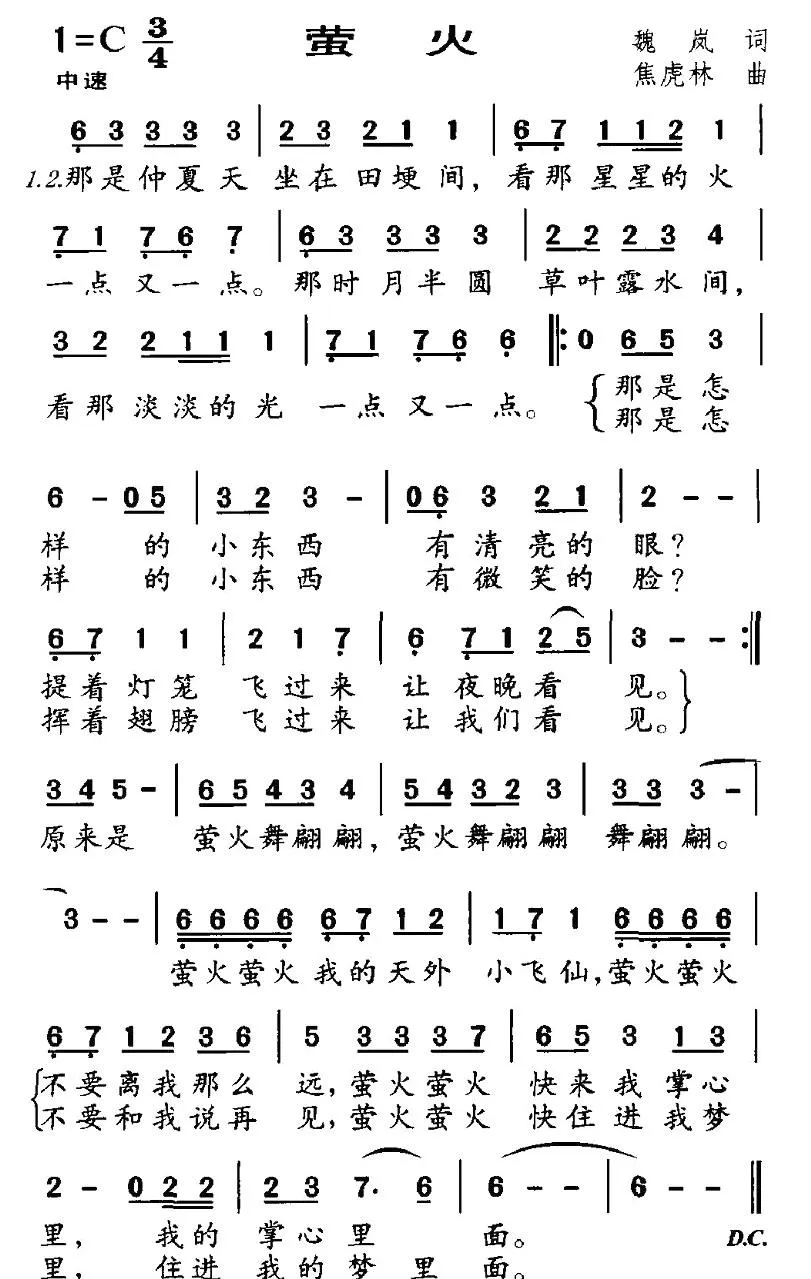 1=C 3/4 萤 火 魏 岚 词
中速 焦虎林 曲
6 3 3 3 3 | 2 3 2 1 1 | 6 7 1 1 2 1 |
1.2.那是仲夏天 坐在田埂间，看那星星的火
7 1 7 6 7 | 6 3 3 3 3 | 2 2 2 3 4 |
一点又一点。那时月半圆 草叶露水间，
3 2 2 1 1 1 | 7 1 7 6 6 |: 0 6 5 3 |
看那淡淡的光 一点又一点。 { 那是怎
那是怎
6 - 0 5 | 3 2 3 - | 0 6 3 2 1 | 2 - - |
样 的 小东西 有清亮的 眼？
样 的 小东西 有微笑的 脸？
6 7 1 1 | 2 1 7 | 6 7 1 2 5 | 3 - - :|
提着灯笼 飞过来 让夜晚看 见。}
挥着翅膀 飞过来 让我们看 见。
3 4 5 - | 6 5 4 3 4 | 5 4 3 2 3 | 3 3 3 - |
原来是 萤火舞翩翩，萤火舞翩翩 舞翩翩。
3 - - | 6 6 6 6 6 7 1 2 | 1 7 1 6 6 6 6 |
萤火萤火我的天外 小飞仙，萤火萤火
6 7 1 2 3 6 | 5 3 3 3 7 | 6 5 3 1 3 |
{ 不要离我那么 远，萤火萤火 快来我掌心
不要和我说再 见，萤火萤火 快住进我梦
2 - 0 2 2 | 2 3 7· 6 | 6 - - | 6 - - ||
里， 我的 掌心里 面。 D.C.
里， 住进 我的梦里 面。